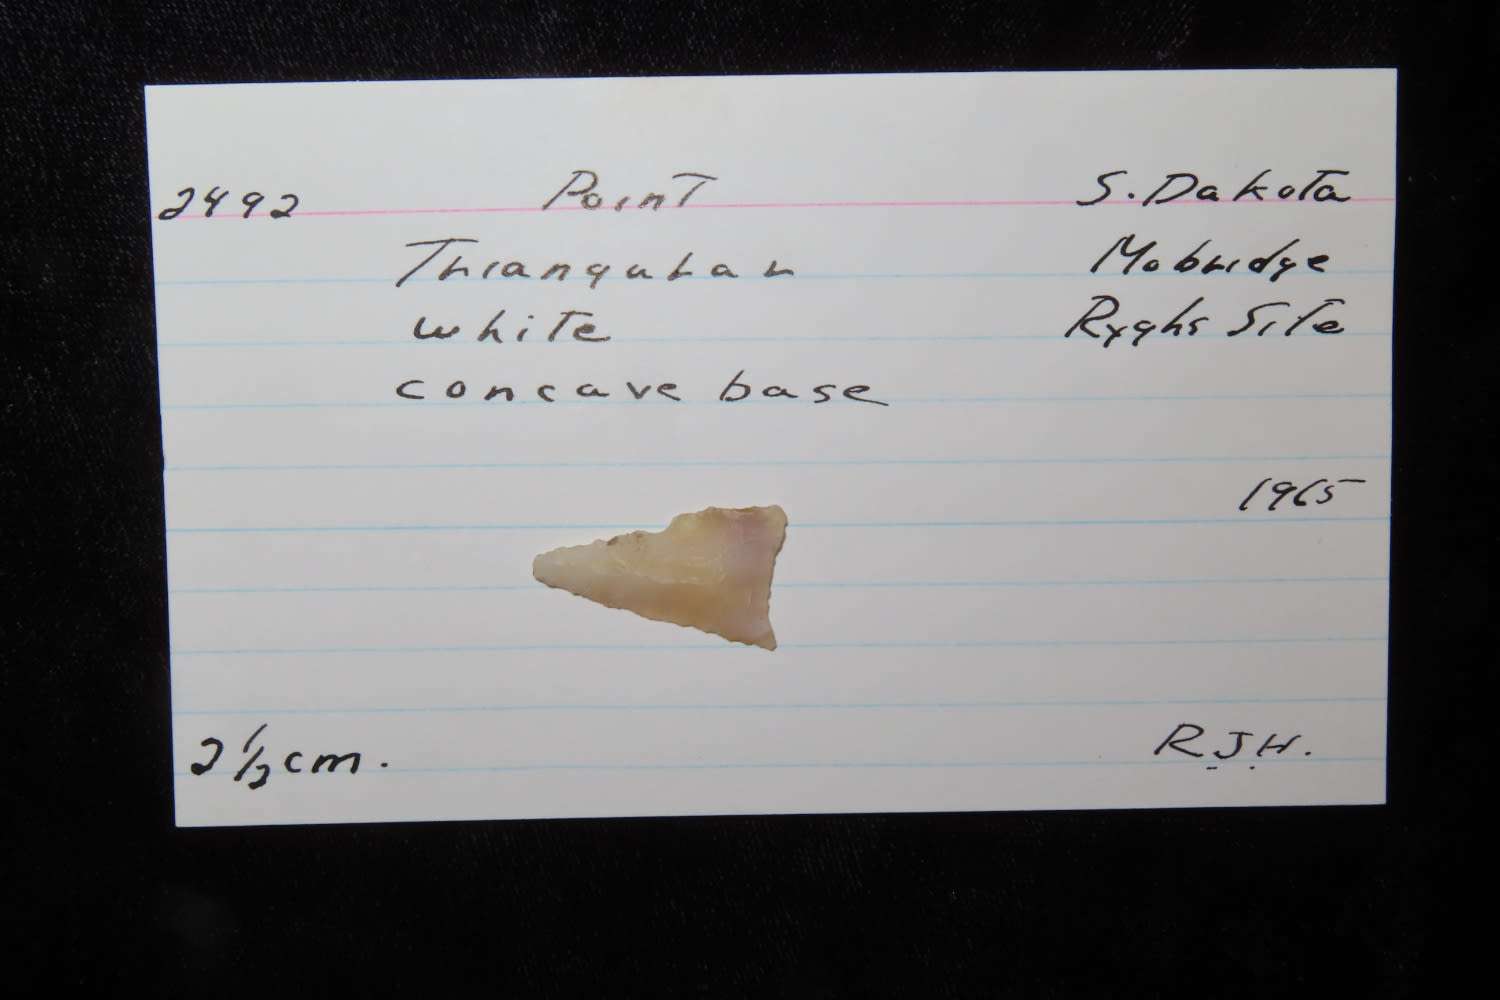 2492 Point S. Dakota
Triangular Mobridge
white Ryghs Site
concave base
1965
2 1/2 cm. R.J.H.